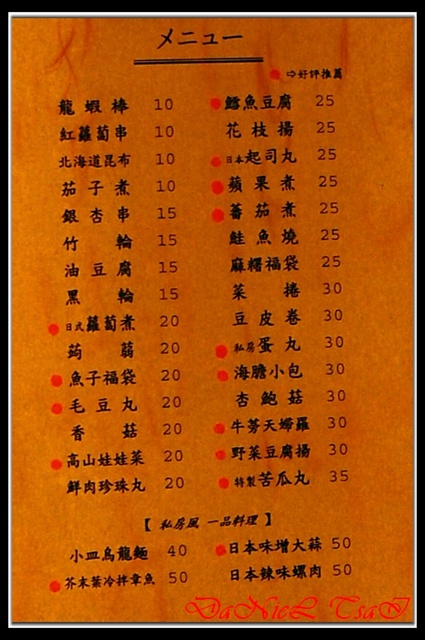 メニュー
⇨好評推薦
龍蝦棒 10
紅蘿蔔串 10
北海道昆布 10
茄子煮 10
銀杏串 15
竹輪 15
油豆腐 15
黑輪 15
日式蘿蔔煮 20
蒟蒻 20
魚子福袋 20
毛豆丸 20
香菇 20
高山娃娃菜 20
鮮肉珍珠丸 20
鱈魚豆腐 25
花枝揚 25
日本起司丸 25
蘋果煮 25
蕃茄煮 25
鮭魚燒 25
麻糬福袋 25
菜捲 30
豆皮卷 30
私房蛋丸 30
海膽小包 30
杏鮑菇 30
牛蒡天婦羅 30
野菜豆腐揚 30
特製苦瓜丸 35
【私房風 一品料理】
小皿烏龍麵 40
芥末葉冷拌章魚 50
日本味增大蒜 50
日本辣味螺肉 50
DaNieL TsaI